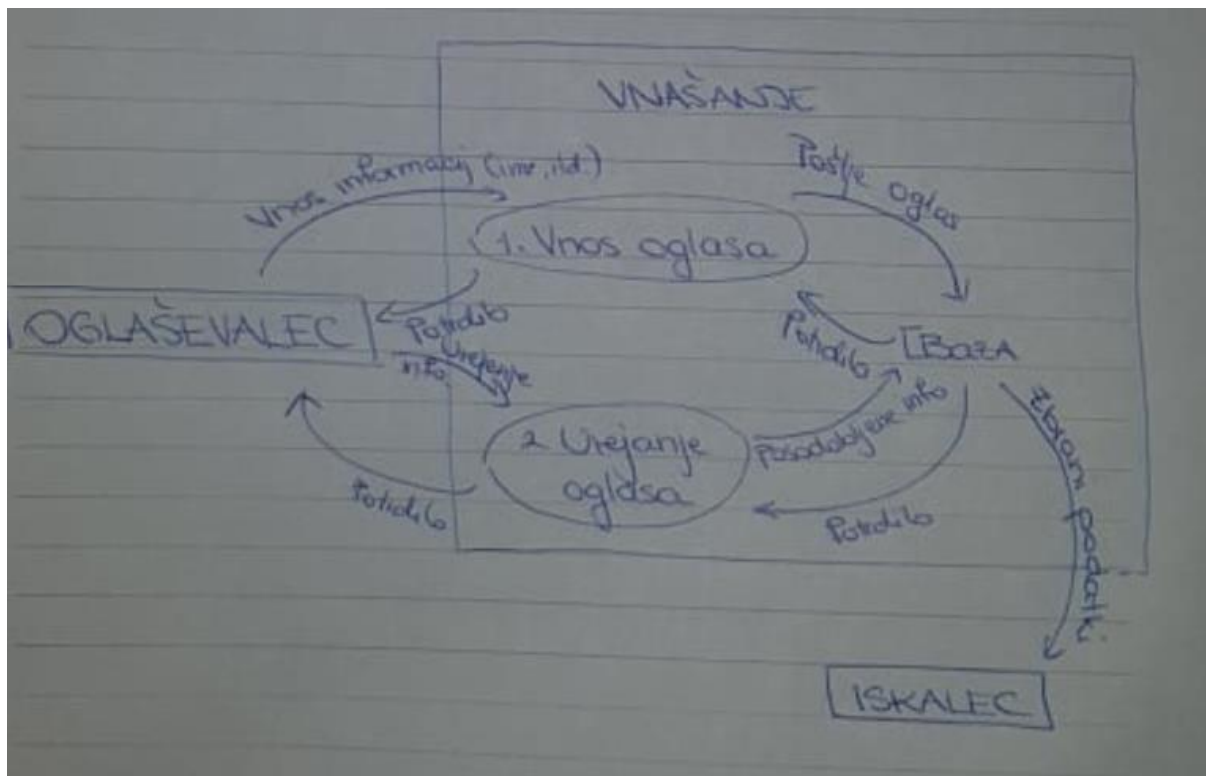 VNAŠANJE
Vnos informacij (ime, itd.)
Pošlje oglas
1. Vnos oglasa
OGLAŠEVALEC
Potrdilo
Urejanje
info
Potrdilo
[BAZA
2 Urejanje
oglasa
Posodobljene info
Potrdilo
Potrdilo
Zbrani podatki
ISKALEC